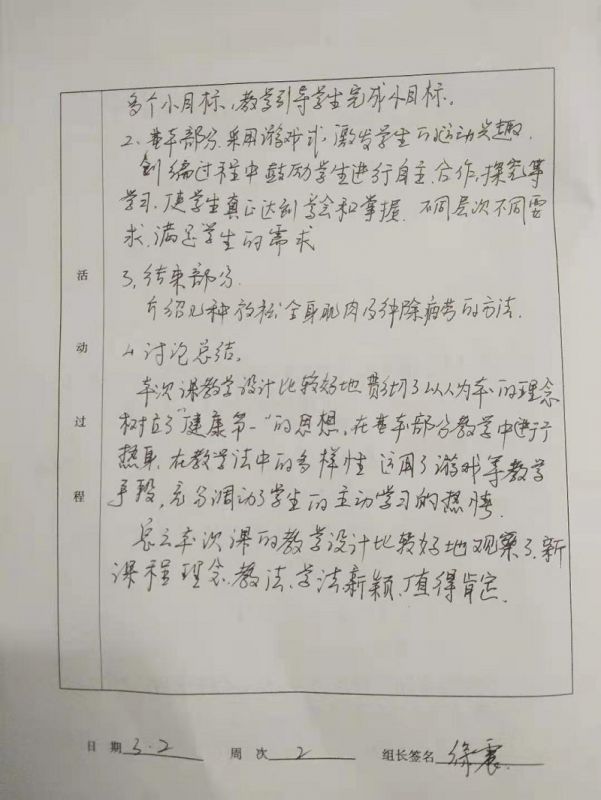 多个小目标,教学引导学生完成小目标。
2、基本部分,采用游戏式,激发学生的运动兴趣.
创编过程中鼓励学生进行自主.合作,探究等
学习,使学生真正达到学会和掌握.不同层次不同要
求,满足学生的需求
3,结束部分.
介绍几种放松全身肌肉及解除疲劳的方法.
4 讨论总结。
本次课教学设计比较好地贯彻了以人为本的理念
树立了"健康第一"的思想,在基本部分教学中进行
热身,在教学法中的多样性 运用了游戏等教学
手段,充分调动了学生的主动学习的热情.
总之本次课的教学设计比较好地观察了.新
课程理念.教法、学法新颖,值得肯定.
活动过程
日 期 3.2 周 次 2 组长签名 徐震